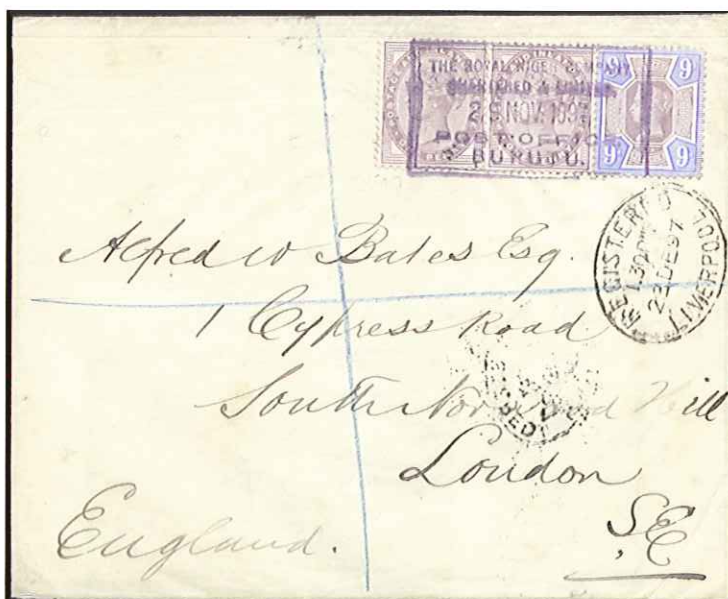 THE ROYAL NIGER COMPANY
CHARTERED & LIMITED
29 NOV. 1897
POST OFFICE
BURUTU.
9 9
9 9
REGISTERED
1.30PM
23 DE 97
LIVERPOOL
Alfred W Bates Esq.
1 Cypress Road
South Norwood Hill
London
S.E
England.